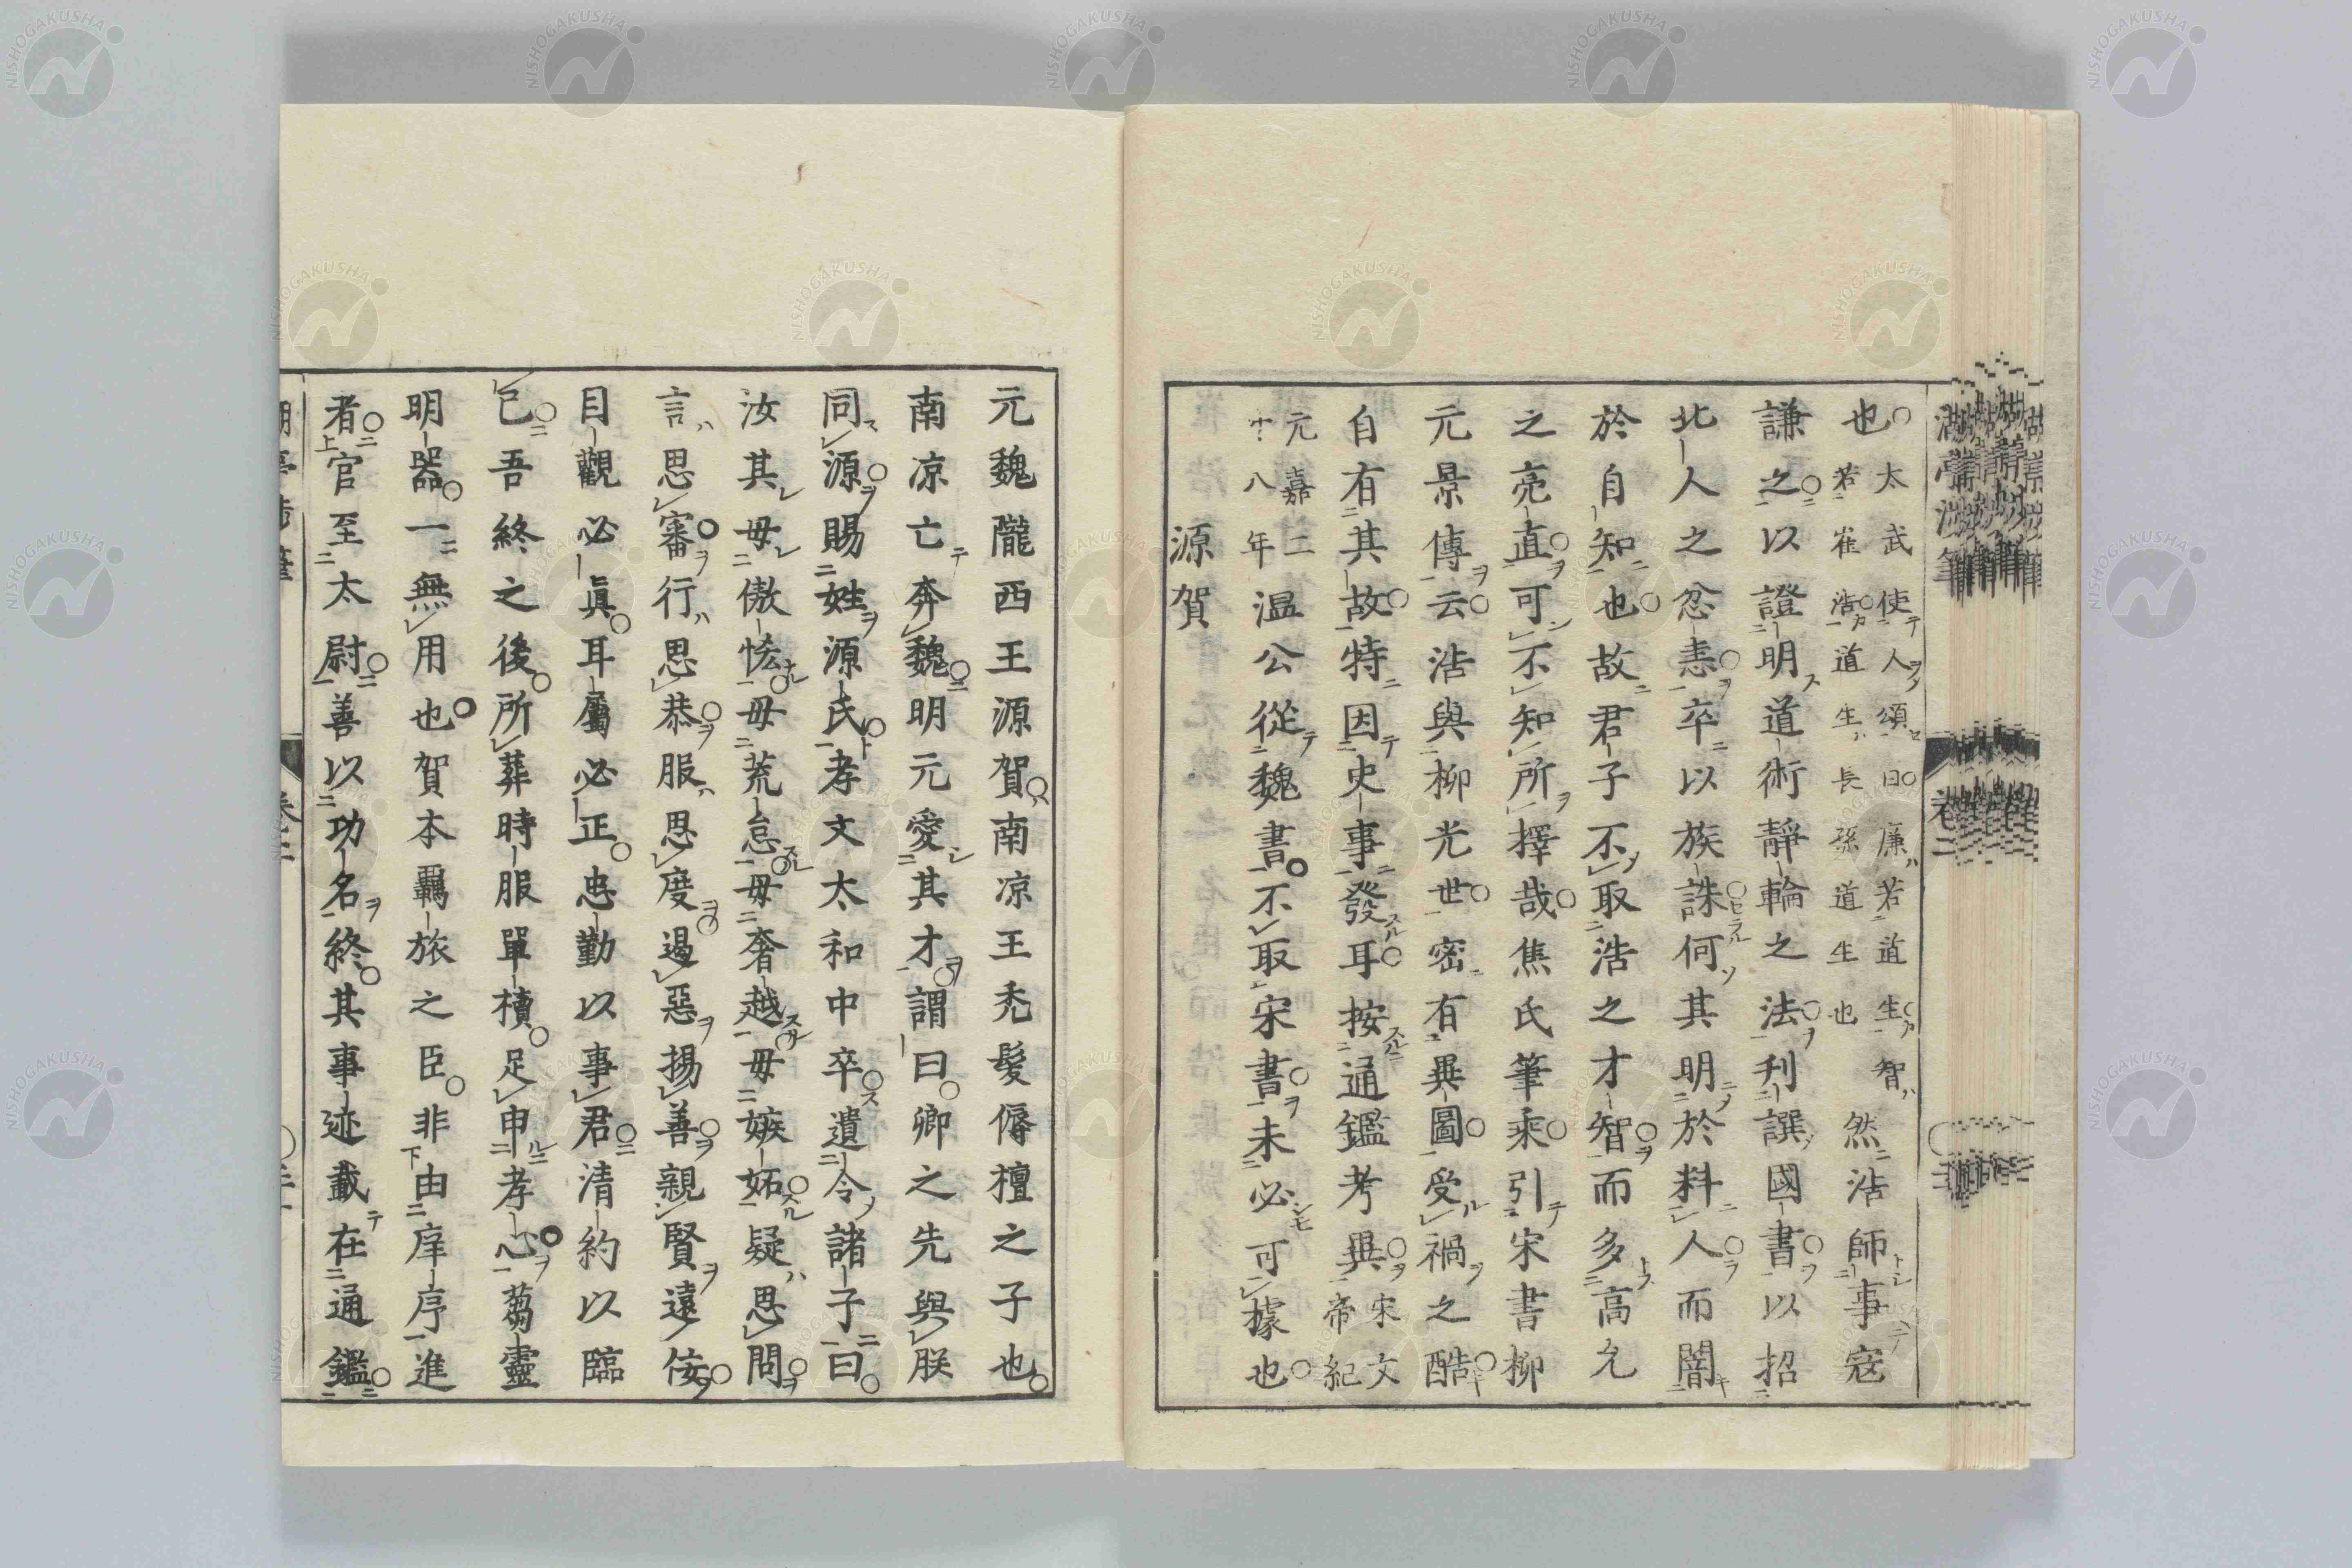 也太武使人頌曰廉若道生智
若崔浩道生長孫道生也然浩師事寇
謙之以證明道術靜輪之法利譔國書以招
北人之忿恚卒以族誅何其明於料人而闇
於自知也故君子不取浩之才智而多高允
之亮直可不知所擇哉焦氏筆乘引宋書柳
元景傳云浩與柳光世密有異圖受禍之酷
自有其故特因史事發耳按通鑑考異宋文
帝紀
元嘉二
十八年溫公從魏書不取宋書未必可據也
源賀
元魏隴西王源賀南凉王禿髮傉檀之子也
南凉亡奔魏明元愛其才謂曰卿之先與朕
同源賜姓源氏孝文太和中卒遺令諸子曰
汝其毋傲悋毋荒怠毋奢越毋嫉妬疑思問
言思審行思恭服思度遏惡揚善親賢遠佞
目觀必眞耳屬必正忠勤以事君清約以臨
已吾終之後所葬時服單櫝足申孝心蒭靈
明器一無用也賀本羈旅之臣非由庠序進
者官至太尉善以功名終其事迹載在通鑑
NISHOGAKUSHA